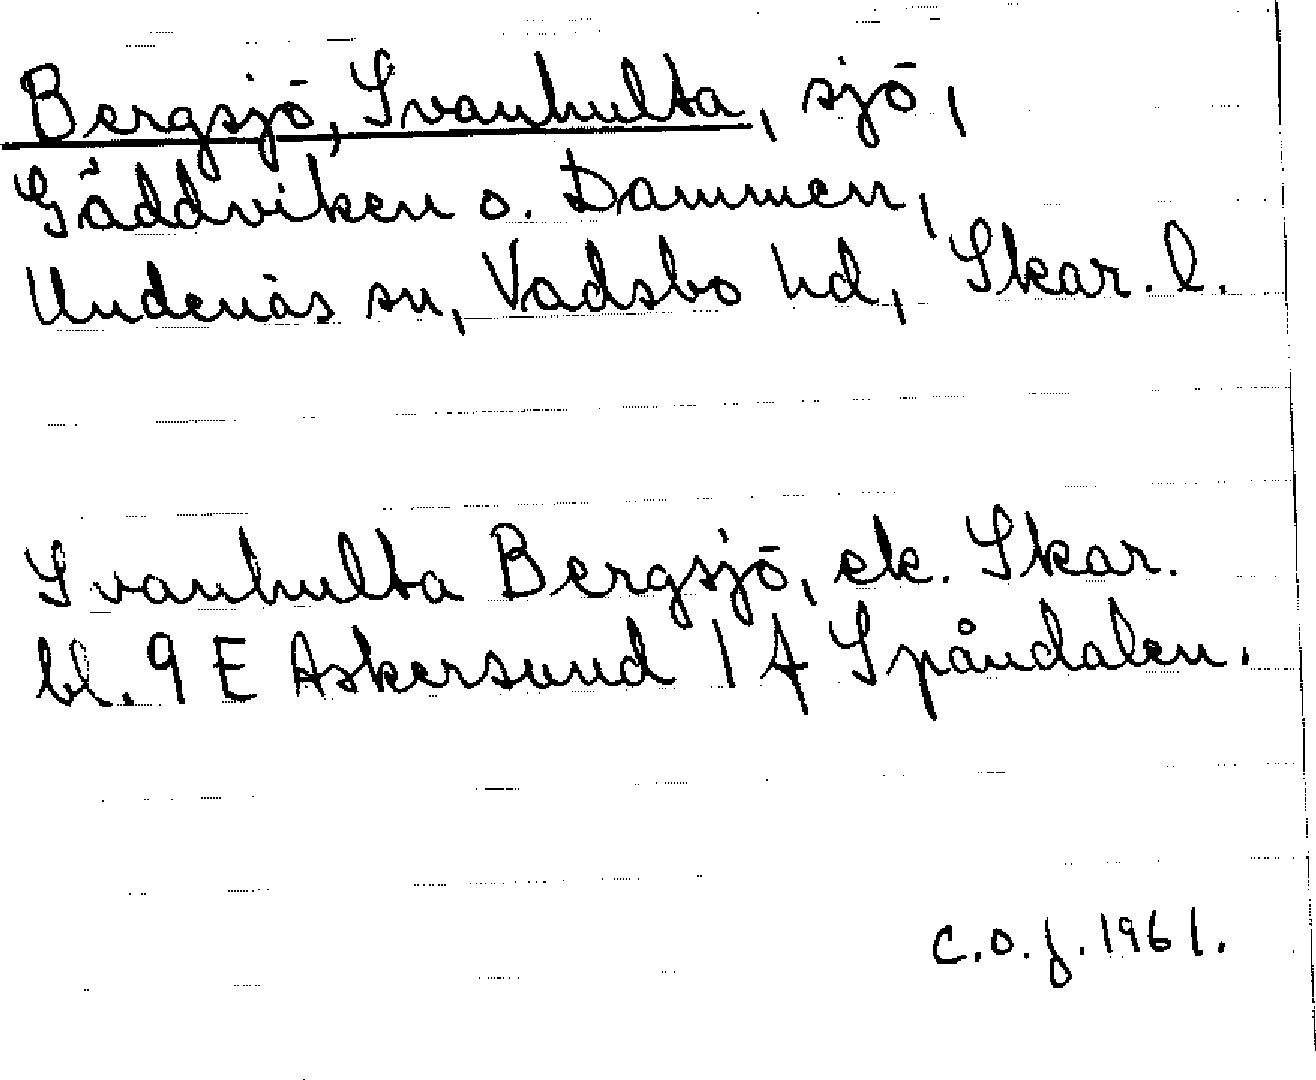 Bergsjö, Svanhulta, sjö,
Gäddviken o. Dammen,
Undenäs sn, Vadsbo hd, Skar. l.
Svanhulta Bergsjö, ek. Skar.
bl. 9 E Askersund 1 f Spåndalen.
C.O.J. 1961.